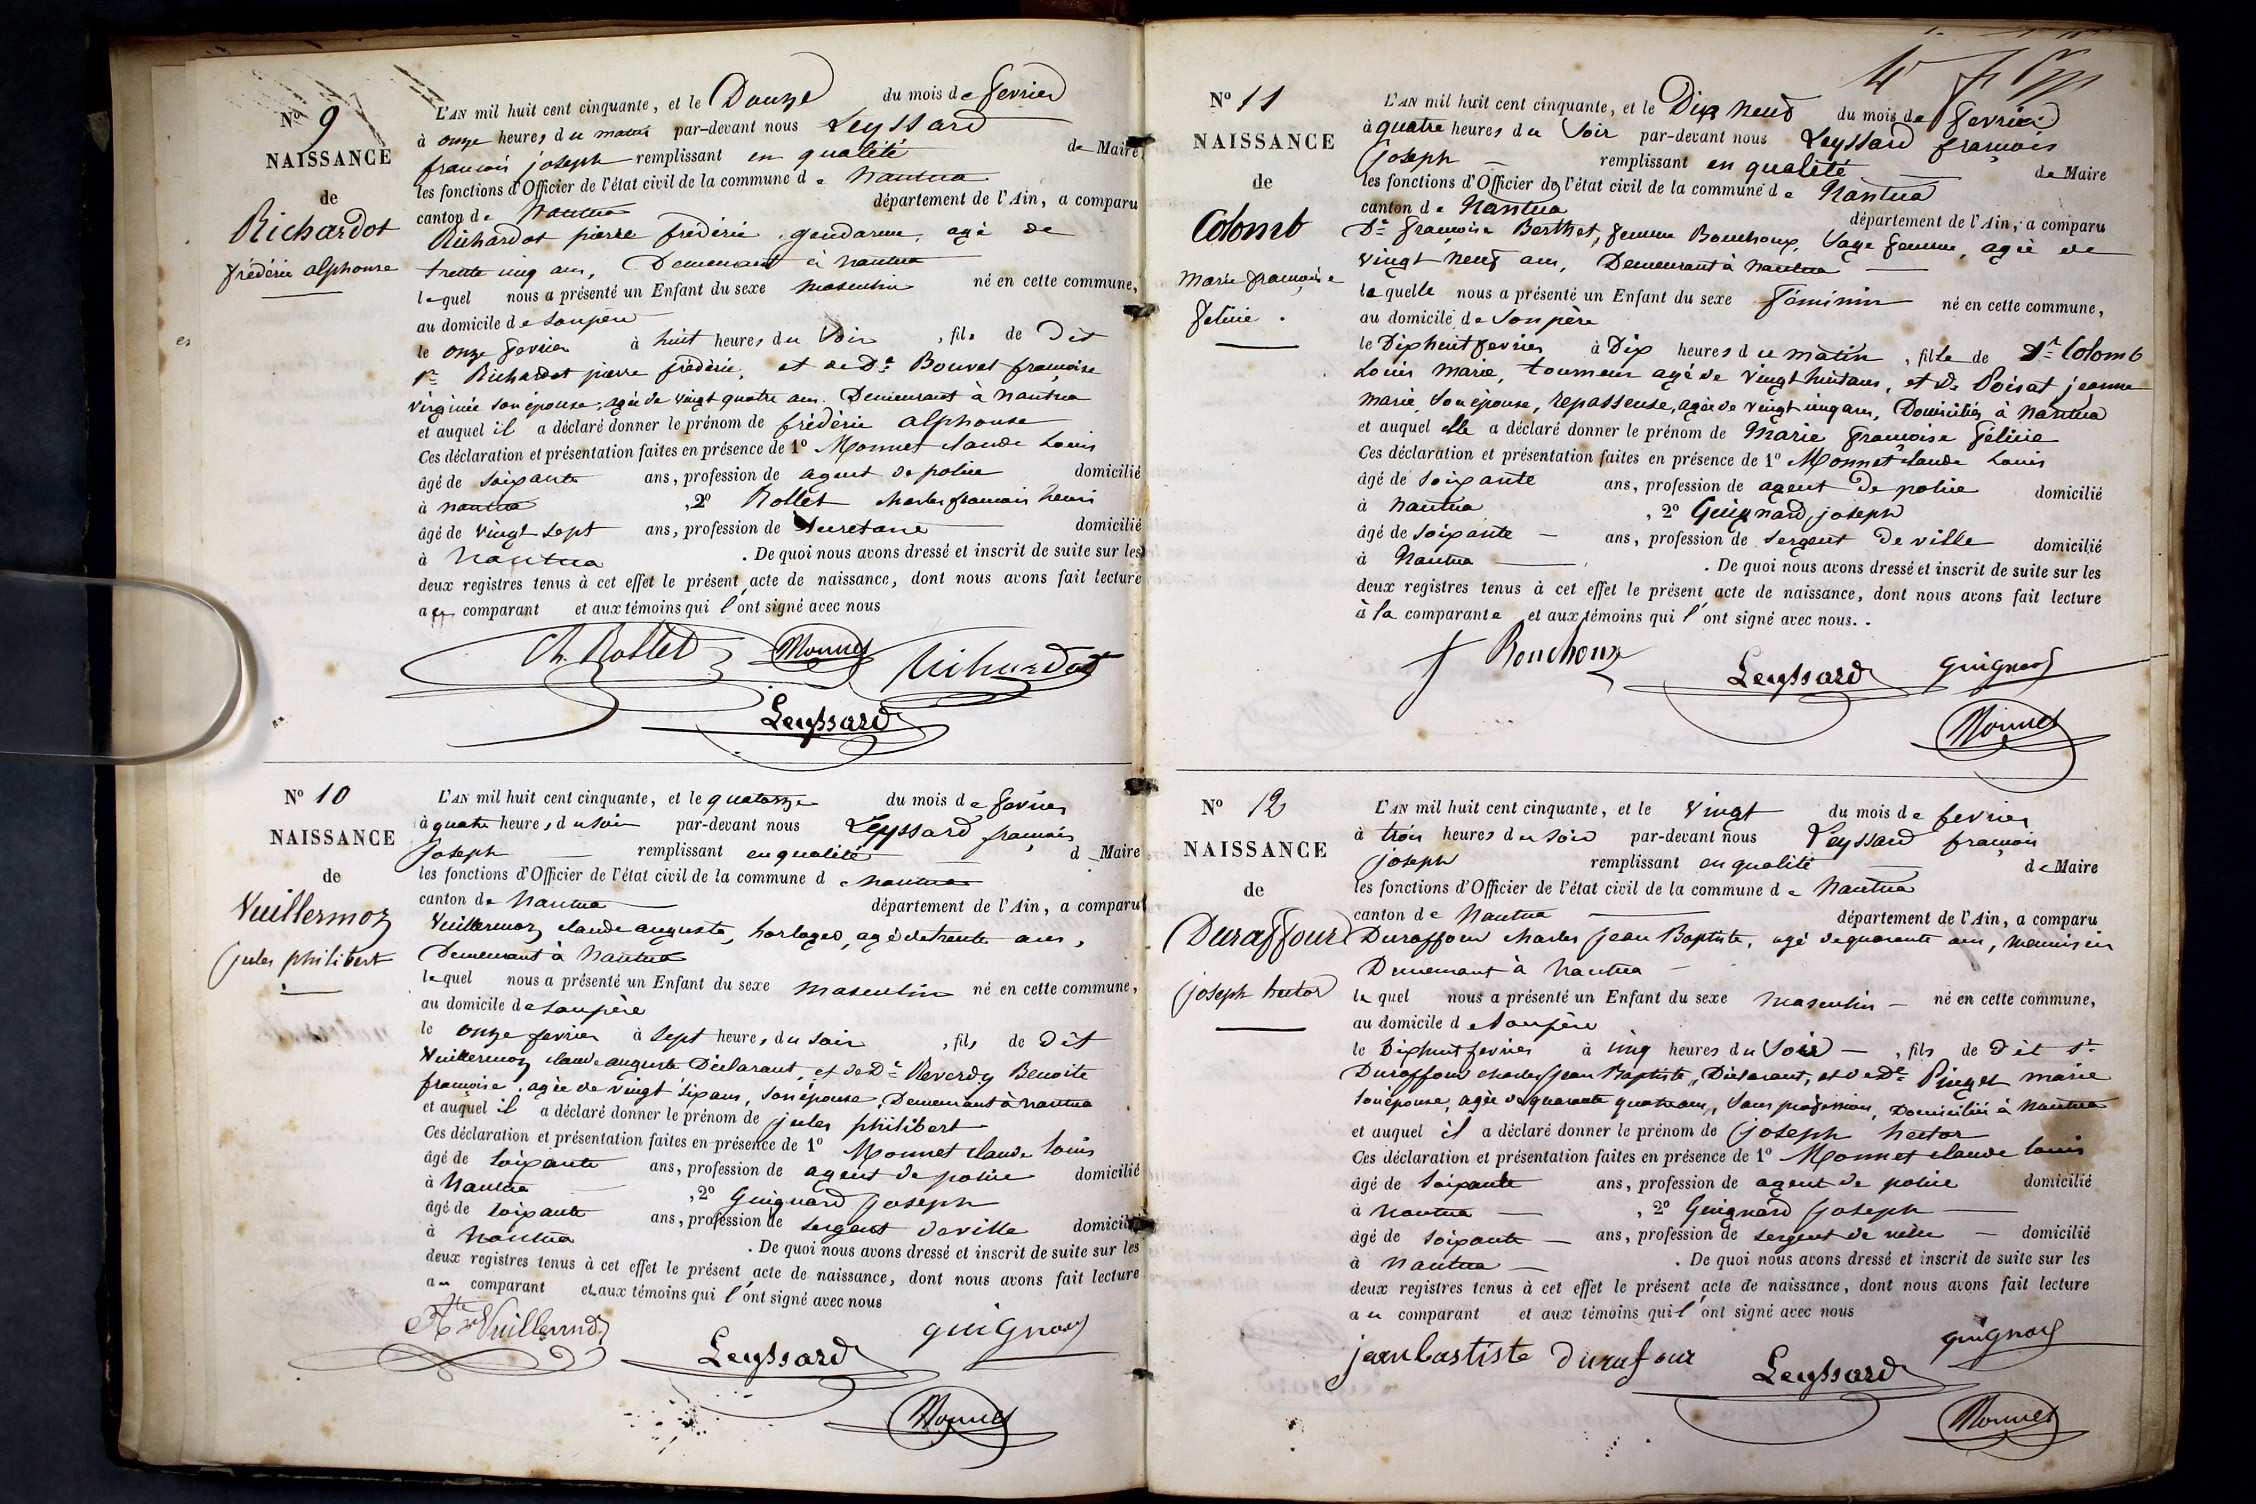 Nº 9
NAISSANCE
de
Richardot
frédéric alphonse
L'AN mil huit cent cinquante, et le Douze du mois de fevrier
à onze heures du matin par-devant nous Leyssard
françois joseph remplissant en qualité de Maire
les fonctions d'Officier de l'état civil de la commune de Nantua
canton de Nantua département de l'Ain, a comparu
Richardot pierre frédéric, gendarme, agé de
trente cinq ans, Demeurant à Nantua
lequel nous a présenté un Enfant du sexe masculin né en cette commune,
au domicile de son père
le onze fevrier à huit heures du Soir, fils de Dit
Sr Richardot pierre frédéric, et de De Bouvet françoise
virginie son épouse, agée de vingt quatre ans. Demeurant à Nantua
et auquel il a déclaré donner le prénom de frédéric alphonse
Ces déclaration et présentation faites en présence de 1º Monnet claude Louis
âgé de soixante ans, profession de agent de police domicilié
à Nantua, 2º Rollet charles françois henri
âgé de vingt sept ans, profession de Secretaire domicilié
à Nantua. De quoi nous avons dressé et inscrit de suite sur les
deux registres tenus à cet effet le présent acte de naissance, dont nous avons fait lecture
au comparant et aux témoins qui l'ont signé avec nous
Ch Rollet Monnet Richardot
Leyssard
Nº 10
NAISSANCE
de
Vuillermoz
jules philibert
L'AN mil huit cent cinquante, et le quatorze du mois de fevrier
à quatre heures du soir par-devant nous Leyssard françois
joseph remplissant en qualité d Maire
les fonctions d'Officier de l'état civil de la commune de Nantua
canton de Nantua département de l'Ain, a comparu
Vuillermoz claude auguste, horloger, agé de trente ans,
Demeurant à Nantua
lequel nous a présenté un Enfant du sexe masculin né en cette commune,
au domicile de son père
le onze fevrier à sept heures du soir, fils de Dit
Vuillermoz claude auguste Déclarant, et de De Reverdy Benoite
françoise, agée de vingt six ans, son épouse, Demeurant à Nantua
et auquel il a déclaré donner le prénom de jules philibert
Ces déclaration et présentation faites en présence de 1º Monnet claude louis
âgé de soixante ans, profession de agent de police domicilié
à Nantua, 2º Guignard joseph
âgé de soixante ans, profession de sergent de ville domicilié
à Nantua. De quoi nous avons dressé et inscrit de suite sur les
deux registres tenus à cet effet le présent acte de naissance, dont nous avons fait lecture
au comparant et aux témoins qui l'ont signé avec nous
Vuillermoz Leyssard guignard
Monnet
Nº 11
NAISSANCE
de
Colomb
Marie françoise
félicie.
L'AN mil huit cent cinquante, et le Dix neuf du mois de fevrier
à quatre heures du Soir par-devant nous Leyssard françois
joseph remplissant en qualité de Maire
les fonctions d'Officier de l'état civil de la commune de Nantua
canton de Nantua département de l'Ain, a comparu
De françoise Berthet, femme Bouchoux, Sage femme, agée de
vingt neuf ans, Demeurant à Nantua
laquelle nous a présenté un Enfant du sexe féminin né en cette commune,
au domicile de son père
le Dix huit fevrier à Dix heures du matin, fille de Sr Colomb
Louis Marie, tourneur agé de vingt huit ans, et de Poisat jeanne
marie, son épouse, repasseuse, agée de vingt cinq ans, Domiciliés à Nantua
et auquel elle a déclaré donner le prénom de Marie françoise félicie
Ces déclaration et présentation faites en présence de 1º Monnet claude Louis
âgé de soixante ans, profession de agent de police domicilié
à Nantua, 2º Guignard joseph
âgé de soixante ans, profession de sergent de ville domicilié
à Nantua. De quoi nous avons dressé et inscrit de suite sur les
deux registres tenus à cet effet le présent acte de naissance, dont nous avons fait lecture
à la comparante et aux témoins qui l'ont signé avec nous..
f Bouchoux Leyssard guignard
Monnet
Nº 12
NAISSANCE
de
Duraffour
joseph hector
L'AN mil huit cent cinquante, et le vingt du mois de fevrier
à trois heures du soir par-devant nous Leyssard françois
joseph remplissant en qualité de Maire
les fonctions d'Officier de l'état civil de la commune de Nantua
canton de Nantua département de l'Ain, a comparu
Duraffour charles jean Baptiste, agé de quarante ans, menuisier
Demeurant à Nantua
lequel nous a présenté un Enfant du sexe masculin né en cette commune,
au domicile de son père
le Dix huit fevrier à cinq heures du Soir, fils de Dit Sr
Duraffour charles jean Baptiste, Déclarant, et de De marie
son épouse, agée de quarante quatre ans, Sans profession, Domiciliés à Nantua
et auquel il a déclaré donner le prénom de joseph hector
Ces déclaration et présentation faites en présence de 1º Monnet claude louis
âgé de soixante ans, profession de agent de police domicilié
à Nantua, 2º Guignard joseph
âgé de soixante ans, profession de sergent de ville domicilié
à Nantua. De quoi nous avons dressé et inscrit de suite sur les
deux registres tenus à cet effet le présent acte de naissance, dont nous avons fait lecture
au comparant et aux témoins qui l'ont signé avec nous
jean bastiste durafour Leyssard guignard
Monnet